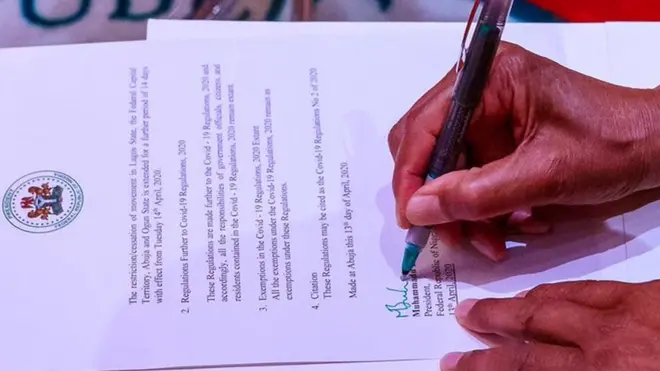 The restriction/cessation of movement in Lagos State, the Federal Capital
Territory, Abuja and Ogun State is extended for a further period of 14 days
with effect from Tuesday 14th April, 2020.
2. Regulations Further to Covid-19 Regulations, 2020
These Regulations are made further to the Covid - 19 Regulations, 2020 and
accordingly, all the responsibilities of government officials, citizens, and
residents contained in the Covid - 19 Regulations, 2020 remain extant.
3. Exemptions in the Covid - 19 Regulations, 2020 Extant
All the exemptions under the Covid-19 Regulations, 2020 remain as
exemptions under these Regulations.
4. Citation
These Regulations may be cited as the Covid-19 Regulations No 2 of 2020
Made at Abuja this 13th day of April, 2020.
President,
Federal Republic of
13th April, 2020